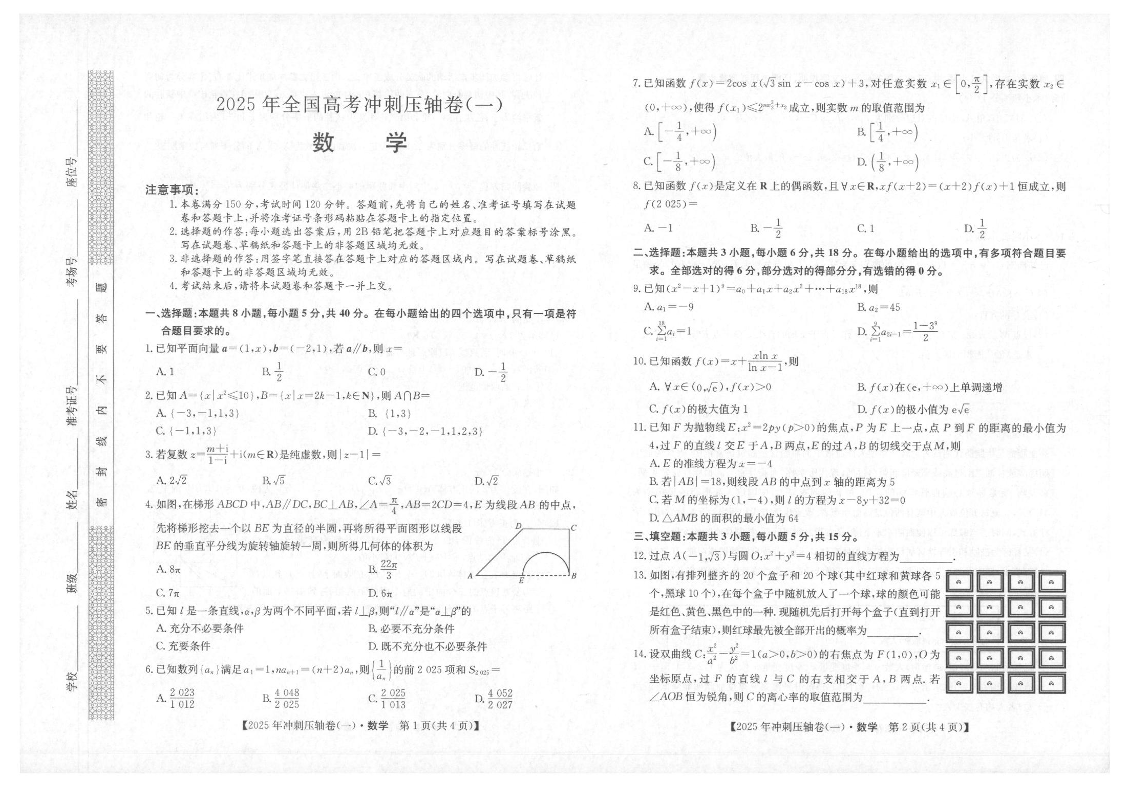 座位号
考场号
准考证号
姓名
班级
学校
密 封 线 内 不 要 答 题
2025 年全国高考冲刺压轴卷(一)
数 学
注意事项:
1.本卷满分 150 分,考试时间 120 分钟。答题前,先将自己的姓名、准考证号填写在试题
卷和答题卡上,并将准考证号条形码粘贴在答题卡上的指定位置。
2.选择题的作答:每小题选出答案后,用 2B 铅笔把答题卡上对应题目的答案标号涂黑。
写在试题卷、草稿纸和答题卡上的非答题区域均无效。
3.非选择题的作答:用签字笔直接答在答题卡上对应的答题区域内。写在试题卷、草稿纸
和答题卡上的非答题区域均无效。
4.考试结束后,请将本试题卷和答题卡一并上交。
一、选择题:本题共 8 小题,每小题 5 分,共 40 分。在每小题给出的四个选项中,只有一项是符
合题目要求的。
1.已知平面向量 a=(1,x),b=(-2,1),若 a∥b,则 x=
A. 1 B. 1/2 C. 0 D. -1/2
2.已知 A={x|x²≤10},B={x|x=2k-1,k∈N},则 A∩B=
A. {-3,-1,1,3} B. {1,3}
C. {-1,1,3} D. {-3,-2,-1,1,2,3}
3.若复数 z=(m+i)/(1-i)+i(m∈R)是纯虚数,则|z-1|=
A. 2√2 B. √5 C. √3 D. √2
4.如图,在梯形 ABCD 中,AB∥DC,BC⊥AB,∠A=π/4,AB=2CD=4,E 为线段 AB 的中点,
先将梯形挖去一个以 BE 为直径的半圆,再将所得平面图形以线段
BE 的垂直平分线为旋转轴旋转一周,则所得几何体的体积为
A. 8π B. 22π/3
C. 7π D. 6π
D C
A E B
5.已知 l 是一条直线,α,β 为两个不同平面,若 l⊥β,则“l∥α”是“α⊥β”的
A. 充分不必要条件 B. 必要不充分条件
C. 充要条件 D. 既不充分也不必要条件
6.已知数列{aₙ}满足 a₁=1,naₙ₊₁=(n+2)aₙ,则{1/aₙ}的前 2 025 项和 S₂ ₀₂₅=
A. 2 023/1 012 B. 4 048/2 025 C. 2 025/1 013 D. 4 052/2 027
【2025 年冲刺压轴卷(一)·数学 第 1 页(共 4 页)】
7.已知函数 f(x)=2cos x(√3 sin x-cos x)+3,对任意实数 x₁∈[0,π/2],存在实数 x₂∈
(0,+∞),使得 f(x₁)≤2^(mx₂²+x₂)成立,则实数 m 的取值范围为
A. [-1/4,+∞) B. [1/4,+∞)
C. [-1/8,+∞) D. (1/8,+∞)
8.已知函数 f(x)是定义在 R 上的偶函数,且∀x∈R,xf(x+2)=(x+2)f(x)+1 恒成立,则
f(2 025)=
A. -1 B. -1/2 C. 1 D. 1/2
二、选择题:本题共 3 小题,每小题 6 分,共 18 分。在每小题给出的选项中,有多项符合题目要
求。全部选对的得 6 分,部分选对的得部分分,有选错的得 0 分。
9.已知(x²-x+1)⁹=a₀+a₁x+a₂x²+⋯+a₁₈x¹⁸,则
A. a₁=-9 B. a₂=45
C. ∑aᵢ=1 D. ∑a₂ᵢ₋₁=(1-3⁹)/2
10.已知函数 f(x)=x+xln x/(ln x-1),则
A. ∀x∈(0,√e),f(x)>0 B. f(x)在(e,+∞)上单调递增
C. f(x)的极大值为 1 D. f(x)的极小值为 e√e
11.已知 F 为抛物线 E:x²=2py(p>0)的焦点,P 为 E 上一点,点 P 到 F 的距离的最小值为
4,过 F 的直线 l 交 E 于 A,B 两点,E 的过 A,B 的切线交于点 M,则
A. E 的准线方程为 x=-4
B. 若|AB|=18,则线段 AB 的中点到 x 轴的距离为 5
C. 若 M 的坐标为(1,-4),则 l 的方程为 x-8y+32=0
D. △AMB 的面积的最小值为 64
三、填空题:本题共 3 小题,每小题 5 分,共 15 分。
12.过点 A(-1,√3)与圆 O:x²+y²=4 相切的直线方程为________.
13.如图,有排列整齐的 20 个盒子和 20 个球(其中红球和黄球各 5
个,黑球 10 个),在每个盒子中随机放入了一个球,球的颜色可能
是红色、黄色、黑色中的一种.现随机先后打开每个盒子(直到打开
所有盒子结束),则红球最先被全部开出的概率为________.
14.设双曲线 C:x²/a²-y²/b²=1(a>0,b>0)的右焦点为 F(1,0),O 为
坐标原点,过 F 的直线 l 与 C 的右支相交于 A,B 两点.若
∠AOB 恒为锐角,则 C 的离心率的取值范围为________.
【2025 年冲刺压轴卷(一)·数学 第 2 页(共 4 页)】